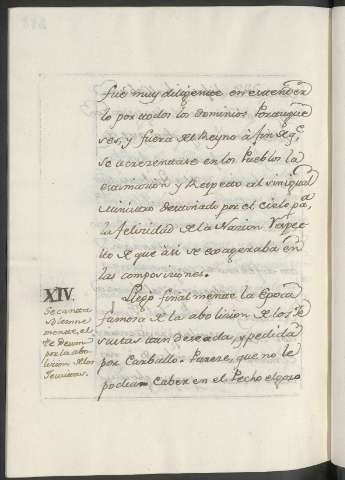 fue muy diligente en estender
lo por todos los Dominios Portugue
ses, y fuera del Reyno à fin de q.e
se acrecentase en los Pueblos la
estimacion y Respeto al sin igual
Ministro destinado por el cielo pa
la felicidad de la Nacion Respec
to de que asi se exageraba en
las composiciones.
XIV.
Se canta
solemne
mente, el
Te Deum
por la abo
licion de los
Jesuitas.
Llegò finalmente la Epoca
famosa de la abolicion de los Je
suitas tan deseada, y pedida
por Carballo. Parece, que no le
podian caber en el Pecho el gozo